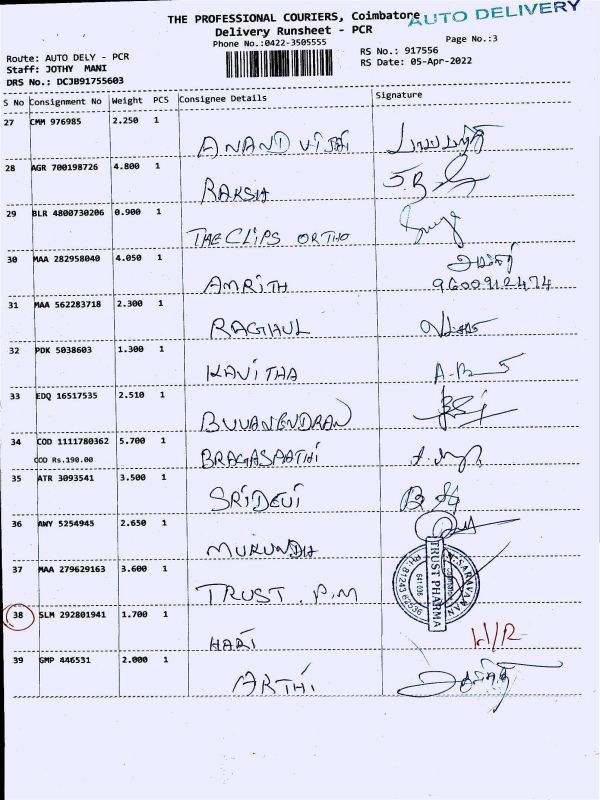 THE PROFESSIONAL COURIERS, Coimbatore
AUTO DELIVERY
Delivery Runsheet - PCR
Phone No.:0422-3505555
Page No.:3
Route: AUTO DELY - PCR
RS No.: 917556
Staff: JOTHY MANI
RS Date: 05-Apr-2022
DRS No.: DCJB91755603
S No Consignment No Weight PCS Consignee Details Signature
27 CMM 976985 2.250 1
ANAND VIJAI
28 AGR 700198726 4.800 1
RAKSH
29 BLR 4800730206 0.900 1
THE CLIPS ORTHO
30 MAA 282958040 4.050 1
AMRITH 9600912474
31 MAA 562283718 2.300 1
RAGHUL
32 PDK 5038603 1.300 1
KAVITHA
33 EDQ 16517535 2.510 1
BUVANENDRAN
34 COD 1111780362 5.700 1
COD Rs.190.00
BRAGASAATHI
35 ATR 3093541 3.500 1
SRIDEVI
36 AWY 5254945 2.650 1
MURUNDH
37 MAA 279629163 3.600 1
TRUST. P.M
TRUST PHARMA
38 SLM 292801941 1.700 1
HARI
39 GMP 446531 2.000 1
ARTHI